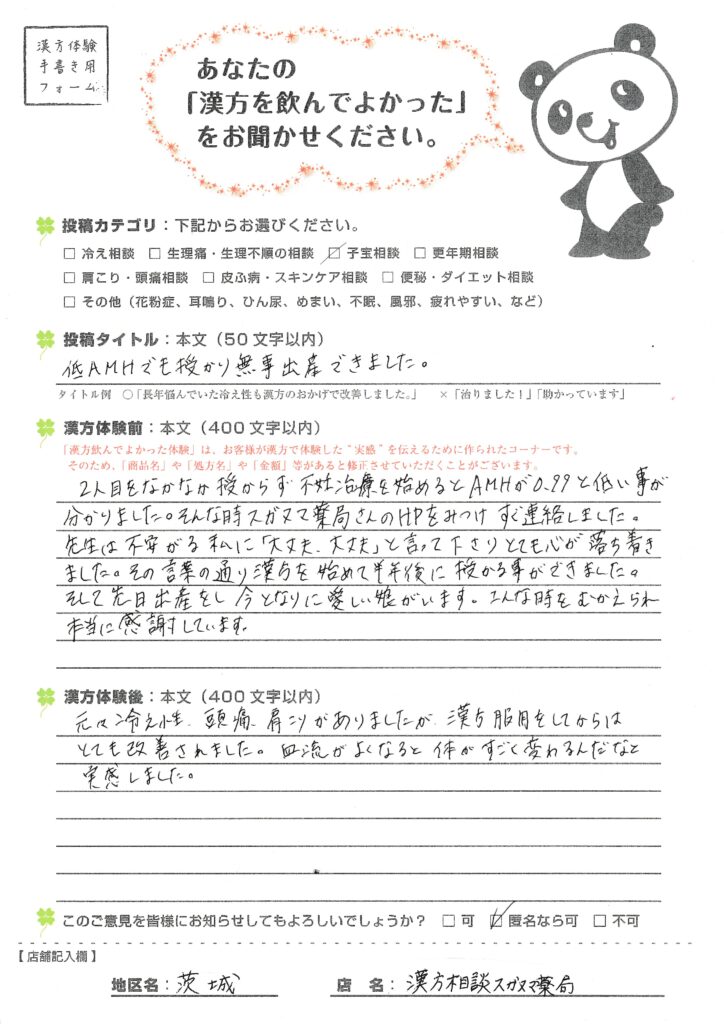 漢方体験
手書き用
フォーム
あなたの
「漢方を飲んでよかった」
をお聞かせください。
投稿カテゴリ：下記からお選びください。
□ 冷え相談 □ 生理痛・生理不順の相談 ☑ 子宝相談 □ 更年期相談
□ 肩こり・頭痛相談 □ 皮ふ病・スキンケア相談 □ 便秘・ダイエット相談
□ その他（花粉症、耳鳴り、ひん尿、めまい、不眠、風邪、疲れやすい、など）
投稿タイトル：本文（50文字以内）
低AMHでも授かり無事出産できました。
タイトル例 ○「長年悩んでいた冷え性も漢方のおかげで改善しました。」 ×「治りました！」「助かっています」
漢方体験前：本文（400文字以内）
「漢方飲んでよかった体験」は、お客様が漢方で体験した“実感”を伝えるために作られたコーナーです。
そのため、「商品名」や「処方名」や「金額」等があると修正させていただくことがございます。
2人目をなかなか授からず不妊治療を始めるとAMHが0.99と低い事が
分かりました。そんな時スガヌマ薬局さんのHPをみつけすぐ連絡しました。
先生は不安がる私に「大丈夫、大丈夫」と言って下さりとても心が落ち着き
ました。その言葉の通り漢方を始めて半年後に授かる事ができました。
そして先日出産をし今となりに愛しい娘がいます。こんな時をむかえられ
本当に感謝しています。
漢方体験後：本文（400文字以内）
元々冷え性、頭痛、肩こりがありましたが、漢方服用をしてからは
とても改善されました。血流がよくなると体がすごく変わるんだなと
実感しました。
このご意見を皆様にお知らせしてもよろしいでしょうか？ □ 可 ☑ 匿名なら可 □ 不可
【店舗記入欄】
地区名：茨城 店 名：漢方相談スガヌマ薬局